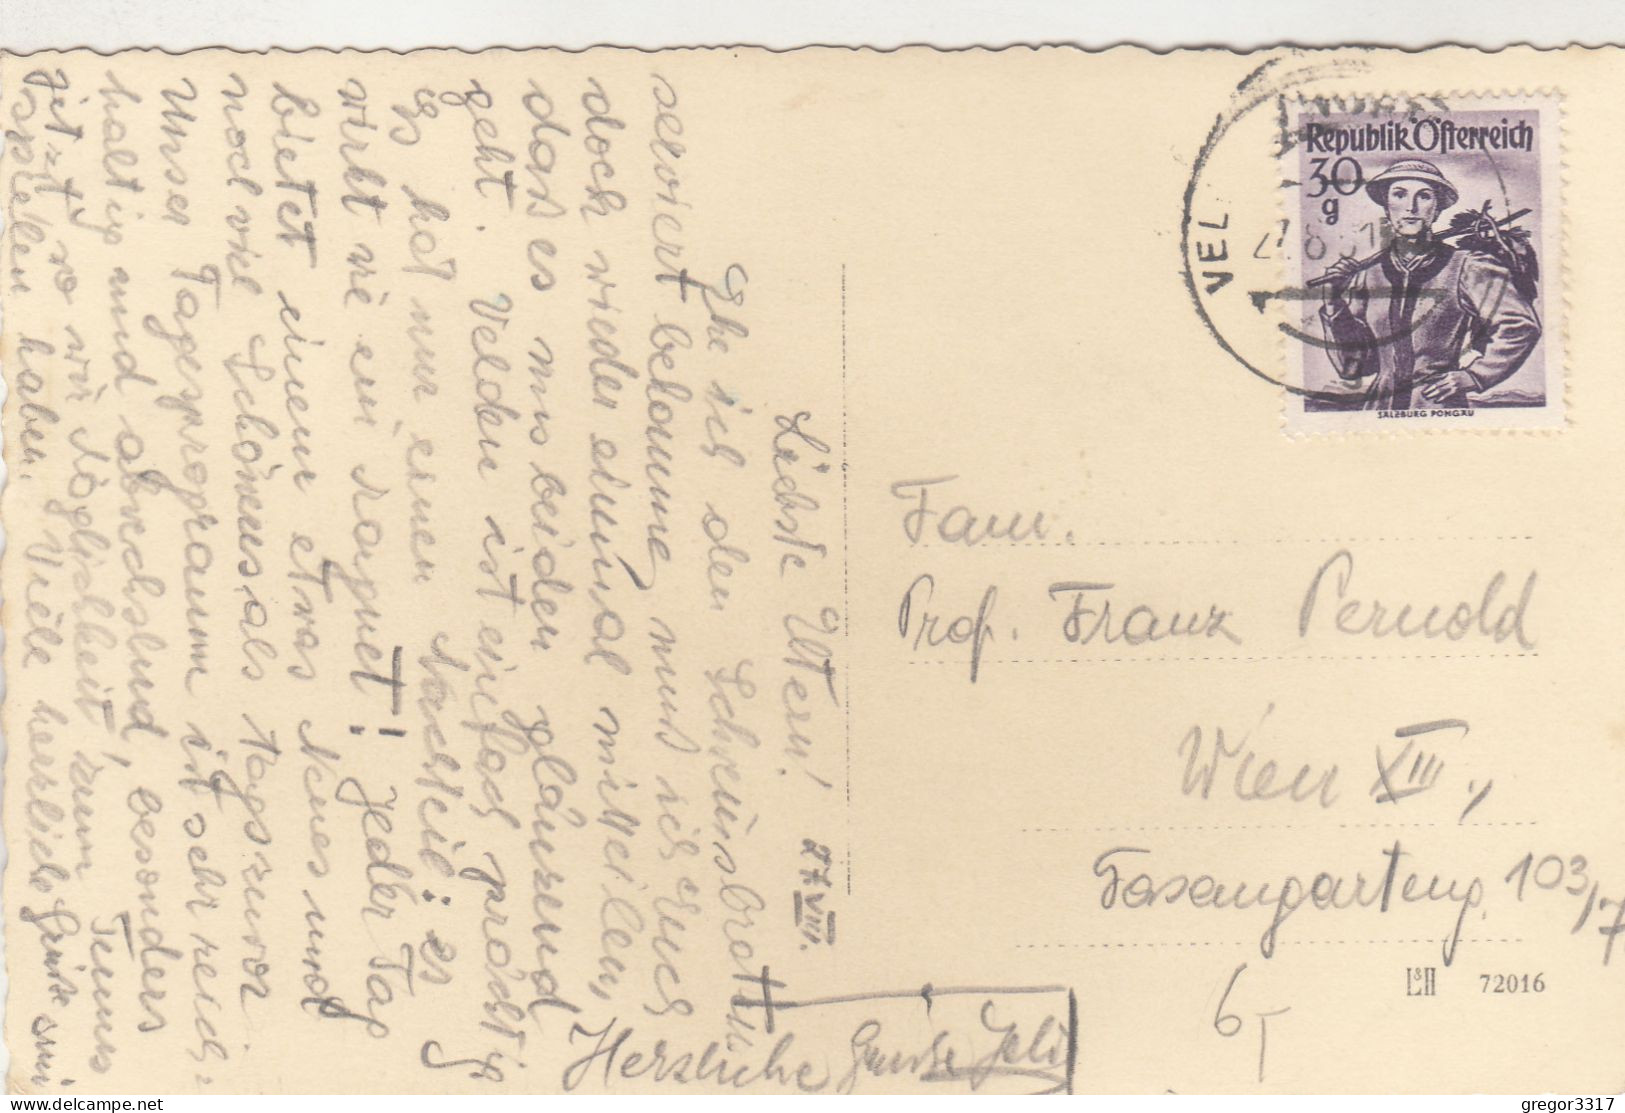 27. VIII.
Liebste Eltern!
Ehe ich den Schweinsbraten
serviert bekomme muss ich Euch
doch wieder einmal mitteilen,
dass es uns beiden glänzend
geht. Velden ist einfach prächtig
Es hat nur einen Nachteil: es
wirkt wie ein Magnet! Jeder Tag
bietet einem etwas Neues und
noch viel Schöneres als tagszuvor.
Unser Tagesprogramm ist sehr reich-
haltig und abwechslund, besonders
jetzt wo wir Möglichkeit zum Tennis
spielen haben. Viele herzliche Grüße
Herzliche Grüsse
Republik Österreich
30
g
SALZBURG PONGAU
VEL
Fam.
Prof. Franz Pernold
Wien XIII.,
Fasangarteng. 103/7
6
L&H 72016
gregor3317